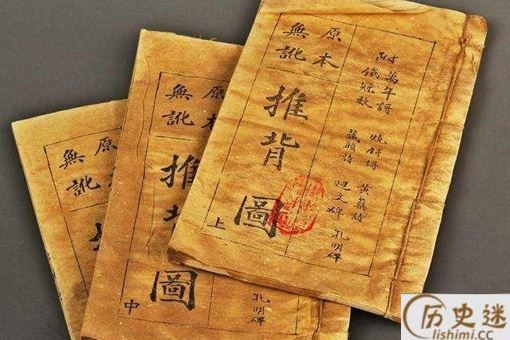 附萬年謌 燒餅謌 黃蘗詩 孔明碑
鐵冠數 藏頭詩 迴文碑
原本
無訛
推背圖
上
孔明碑
原本
無訛
推背圖
中
原本
無訛
历史迷
lishimi.cc